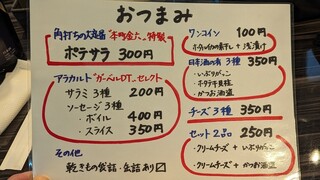 おつまみ
角打ちの大定番 "本町金六" 特製
ポテサラ 300円
アラカルト "ガベルDT" セレクト
サラミ 3種 200円
ソーセージ 3種
・ボイル 400円
・スライス 350円
その他
乾きもの袋詰・缶詰あり〼
ワンコイン 100円
+ 浅漬け
日本酒の肴 3種 350円
・いぶりがっこ
・ホタテ干貝ひも
・かつお酒盗
チーズ 3種 350円
セット 2品 250円
・クリームチーズ + いぶりがっこ
・クリームチーズ + かつお酒盗